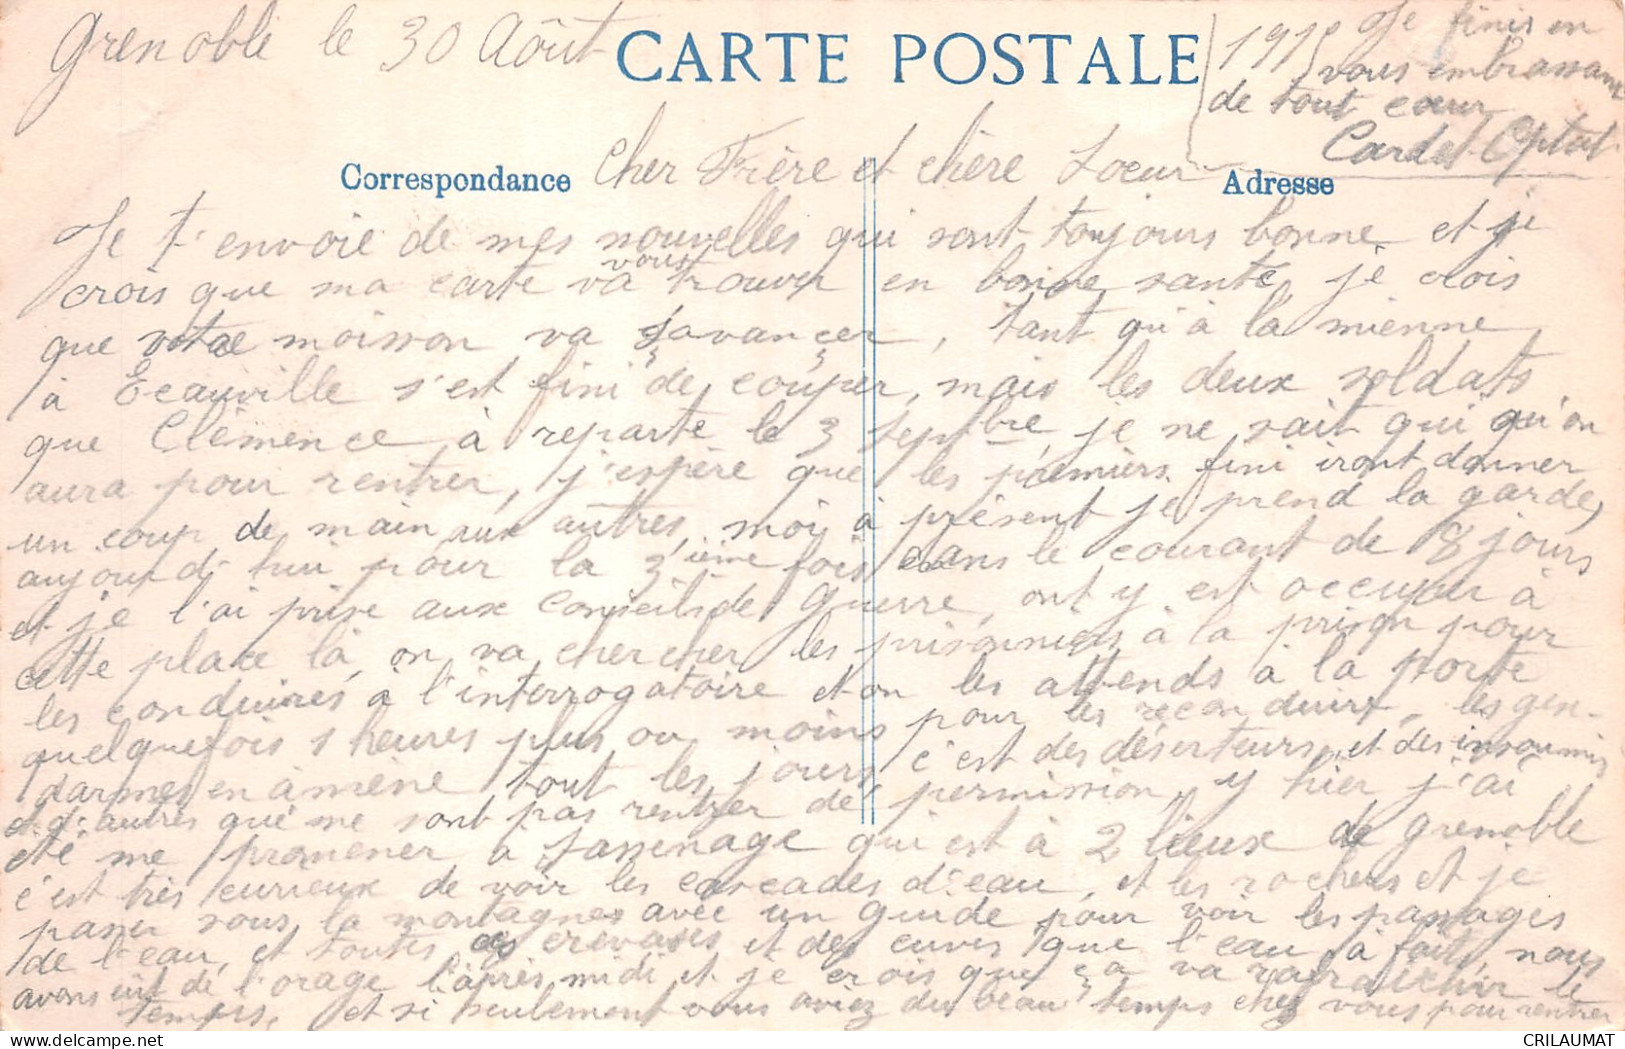 Grenoble le 30 Août 1915
CARTE POSTALE
Correspondance
Adresse
Cher Frère et chère Soeur
Je t'envoie de mes nouvelles qui sont toujours bonne et je
crois que ma carte va vous trouver en bonne santé, je crois
que votre moisson va s'avancer, tant qu'à la mienne
à Ecauville s'est fini de couper, mais les deux soldats
que Clèmence à reparte le 3 Septbre je ne sait qui qu'on
aura pour rentrer, j'espère que les premiers fini iront donner
un coup de main aux autres, moi à présent je prend la garde,
aujourd'hui pour la 3ième fois dans le courant de 8 jours
et je l'ai prise aux Conseils de guerre, ont y est occuper à
cette place là, on va chercher les prisonniers à la prison pour
les conduires à l'interrogatoire et on les attends à la porte
quelquefois 1 heures plus ou moins pour les reconduire, les gen-
darmes en amène tout les jours, c'est des déserteurs, et des insoumis
et d'autres que ne sont pas rentrer de permission, y hier j'ai
été me promener à Sassenage qui est à 2 lieux de Grenoble
c'est très curieux de voir les cascades d'eau, et les rochers et je
passer sous la montagnes avec un guide pour voir les passages
de l'eau, et toutes des crevasses et des cuves que l'eau à fait, nous
avons eut de l'orage l'après midi et je crois que ça va rafraîchir le
temps, et si seulement vous aviez du beau temps chez vous pour rentrer
Je finis en
vous embrassant
de tout coeur
Cardel Optat
© delcampe.net
CRILAUMAT